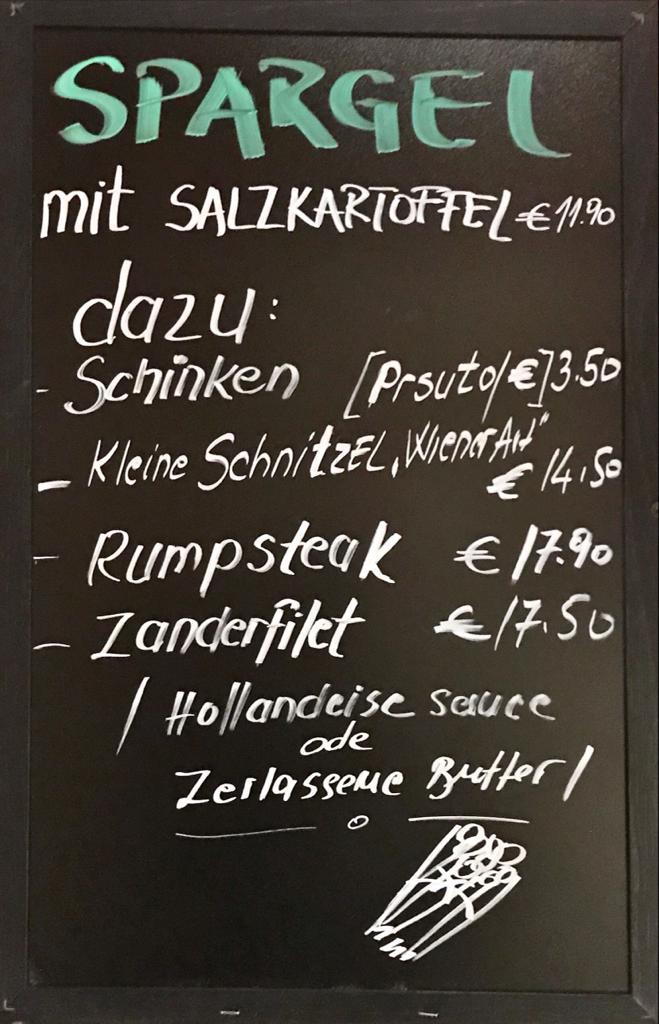 SPARGEL
mit SALZKARTOFFEL € 11.90
dazu:
- Schinken [Prsuto/€] 3.50
- Kleine SchnitzEL „Wiener Art"
€ 14,50
- Rumpsteak € 17.90
- Zanderfilet € 17.50
/ Hollandeise sauce
ode
Zerlassene Butter /